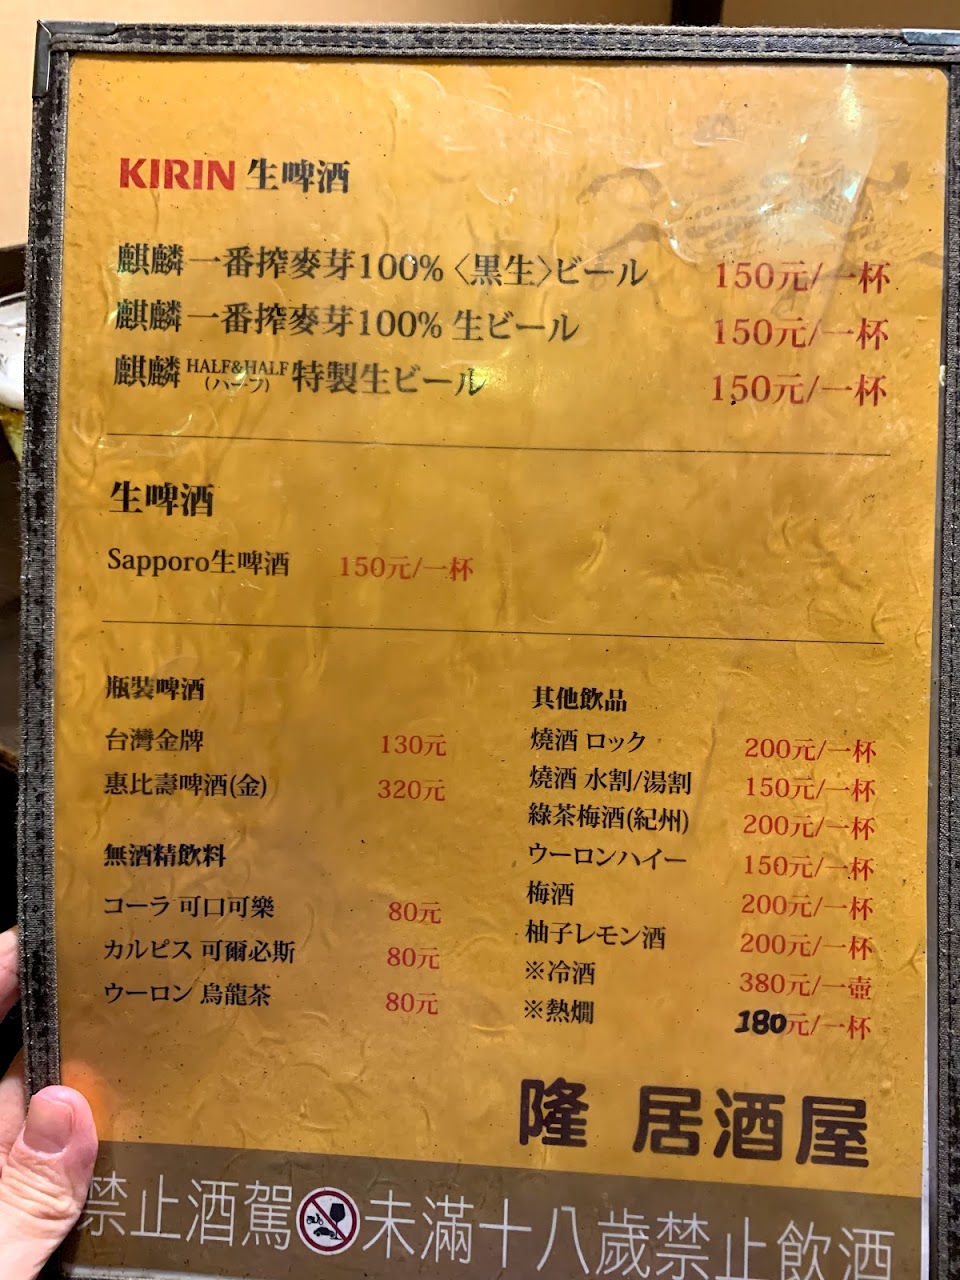 KIRIN 生啤酒
麒麟一番搾麥芽100%〈黒生〉ビール 150元/一杯
麒麟一番搾麥芽100% 生ビール 150元/一杯
麒麟 HALF&HALF (ハーフ) 特製生ビール 150元/一杯
生啤酒
Sapporo生啤酒 150元/一杯
瓶裝啤酒
台灣金牌 130元
惠比壽啤酒(金) 320元
無酒精飲料
コーラ 可口可樂 80元
カルピス 可爾必斯 80元
ウーロン 烏龍茶 80元
其他飲品
燒酒 ロック 200元/一杯
燒酒 水割/湯割 150元/一杯
綠茶梅酒(紀州) 200元/一杯
ウーロンハイー 150元/一杯
梅酒 200元/一杯
柚子レモン酒 200元/一杯
※冷酒 380元/一壺
※熱燗 180元/一杯
隆 居酒屋
禁止酒駕 未滿十八歲禁止飲酒